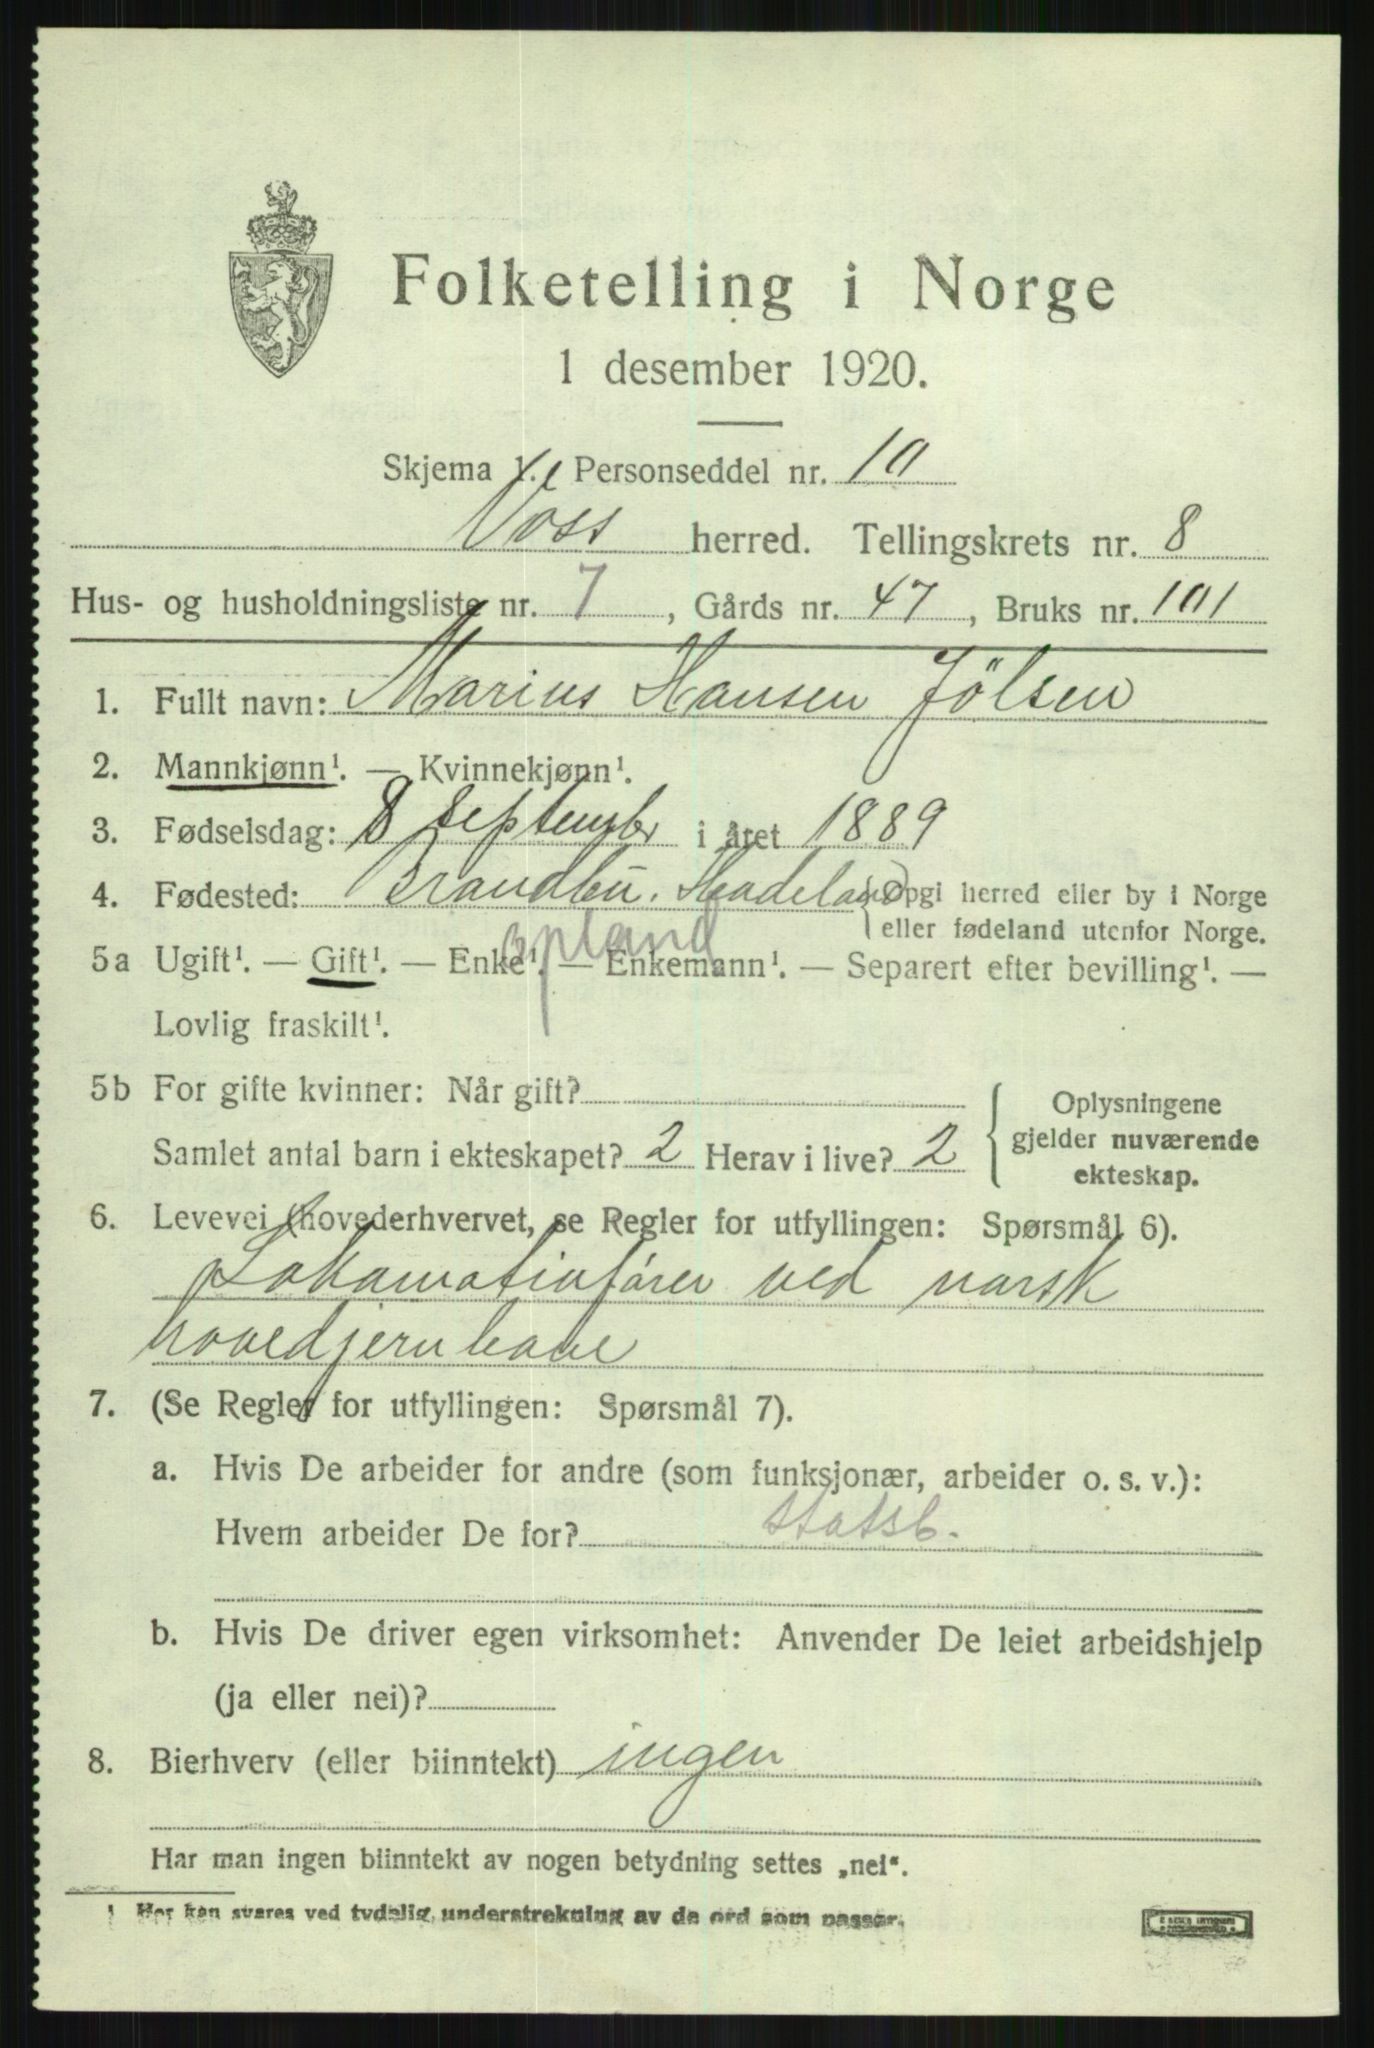 Folketelling i Norge
1 desember 1920.
Skjema 1. Personseddel nr. 10
Voss herred. Tellingskrets nr. 8
Hus- og husholdningsliste nr. 7, Gårds nr. 47, Bruks nr. 101
1. Fullt navn: Marius Hansen Jölsen
2. Mannkjønn¹. — Kvinnekjønn¹.
3. Fødselsdag: 8 September i året 1889
4. Fødested: Brandbu. Hadeland {Opgi herred eller by i Norge
eller fødeland utenfor Norge.
opland
5a Ugift¹. — Gift¹. — Enke¹. — Enkemann¹. — Separert efter bevilling¹. —
Lovlig fraskilt¹.
5b For gifte kvinner: Når gift?
Samlet antal barn i ekteskapet? 2 Herav i live? 2
{ Oplysningene
gjelder nuværende
ekteskap.
6. Levevei (hovederhvervet, se Regler for utfyllingen: Spørsmål 6).
Lokomotivfører ved norsk
hovedjernbane
7. (Se Regler for utfyllingen: Spørsmål 7).
a. Hvis De arbeider for andre (som funksjonær, arbeider o. s. v.):
Hvem arbeider De for? Statsb.
b. Hvis De driver egen virksomhet: Anvender De leiet arbeidshjelp
(ja eller nei)?
8. Bierhverv (eller biinntekt) ingen
Har man ingen biinntekt av nogen betydning settes „nei“.
¹ Her kan svares ved tydelig understrekning av de ord som passer.